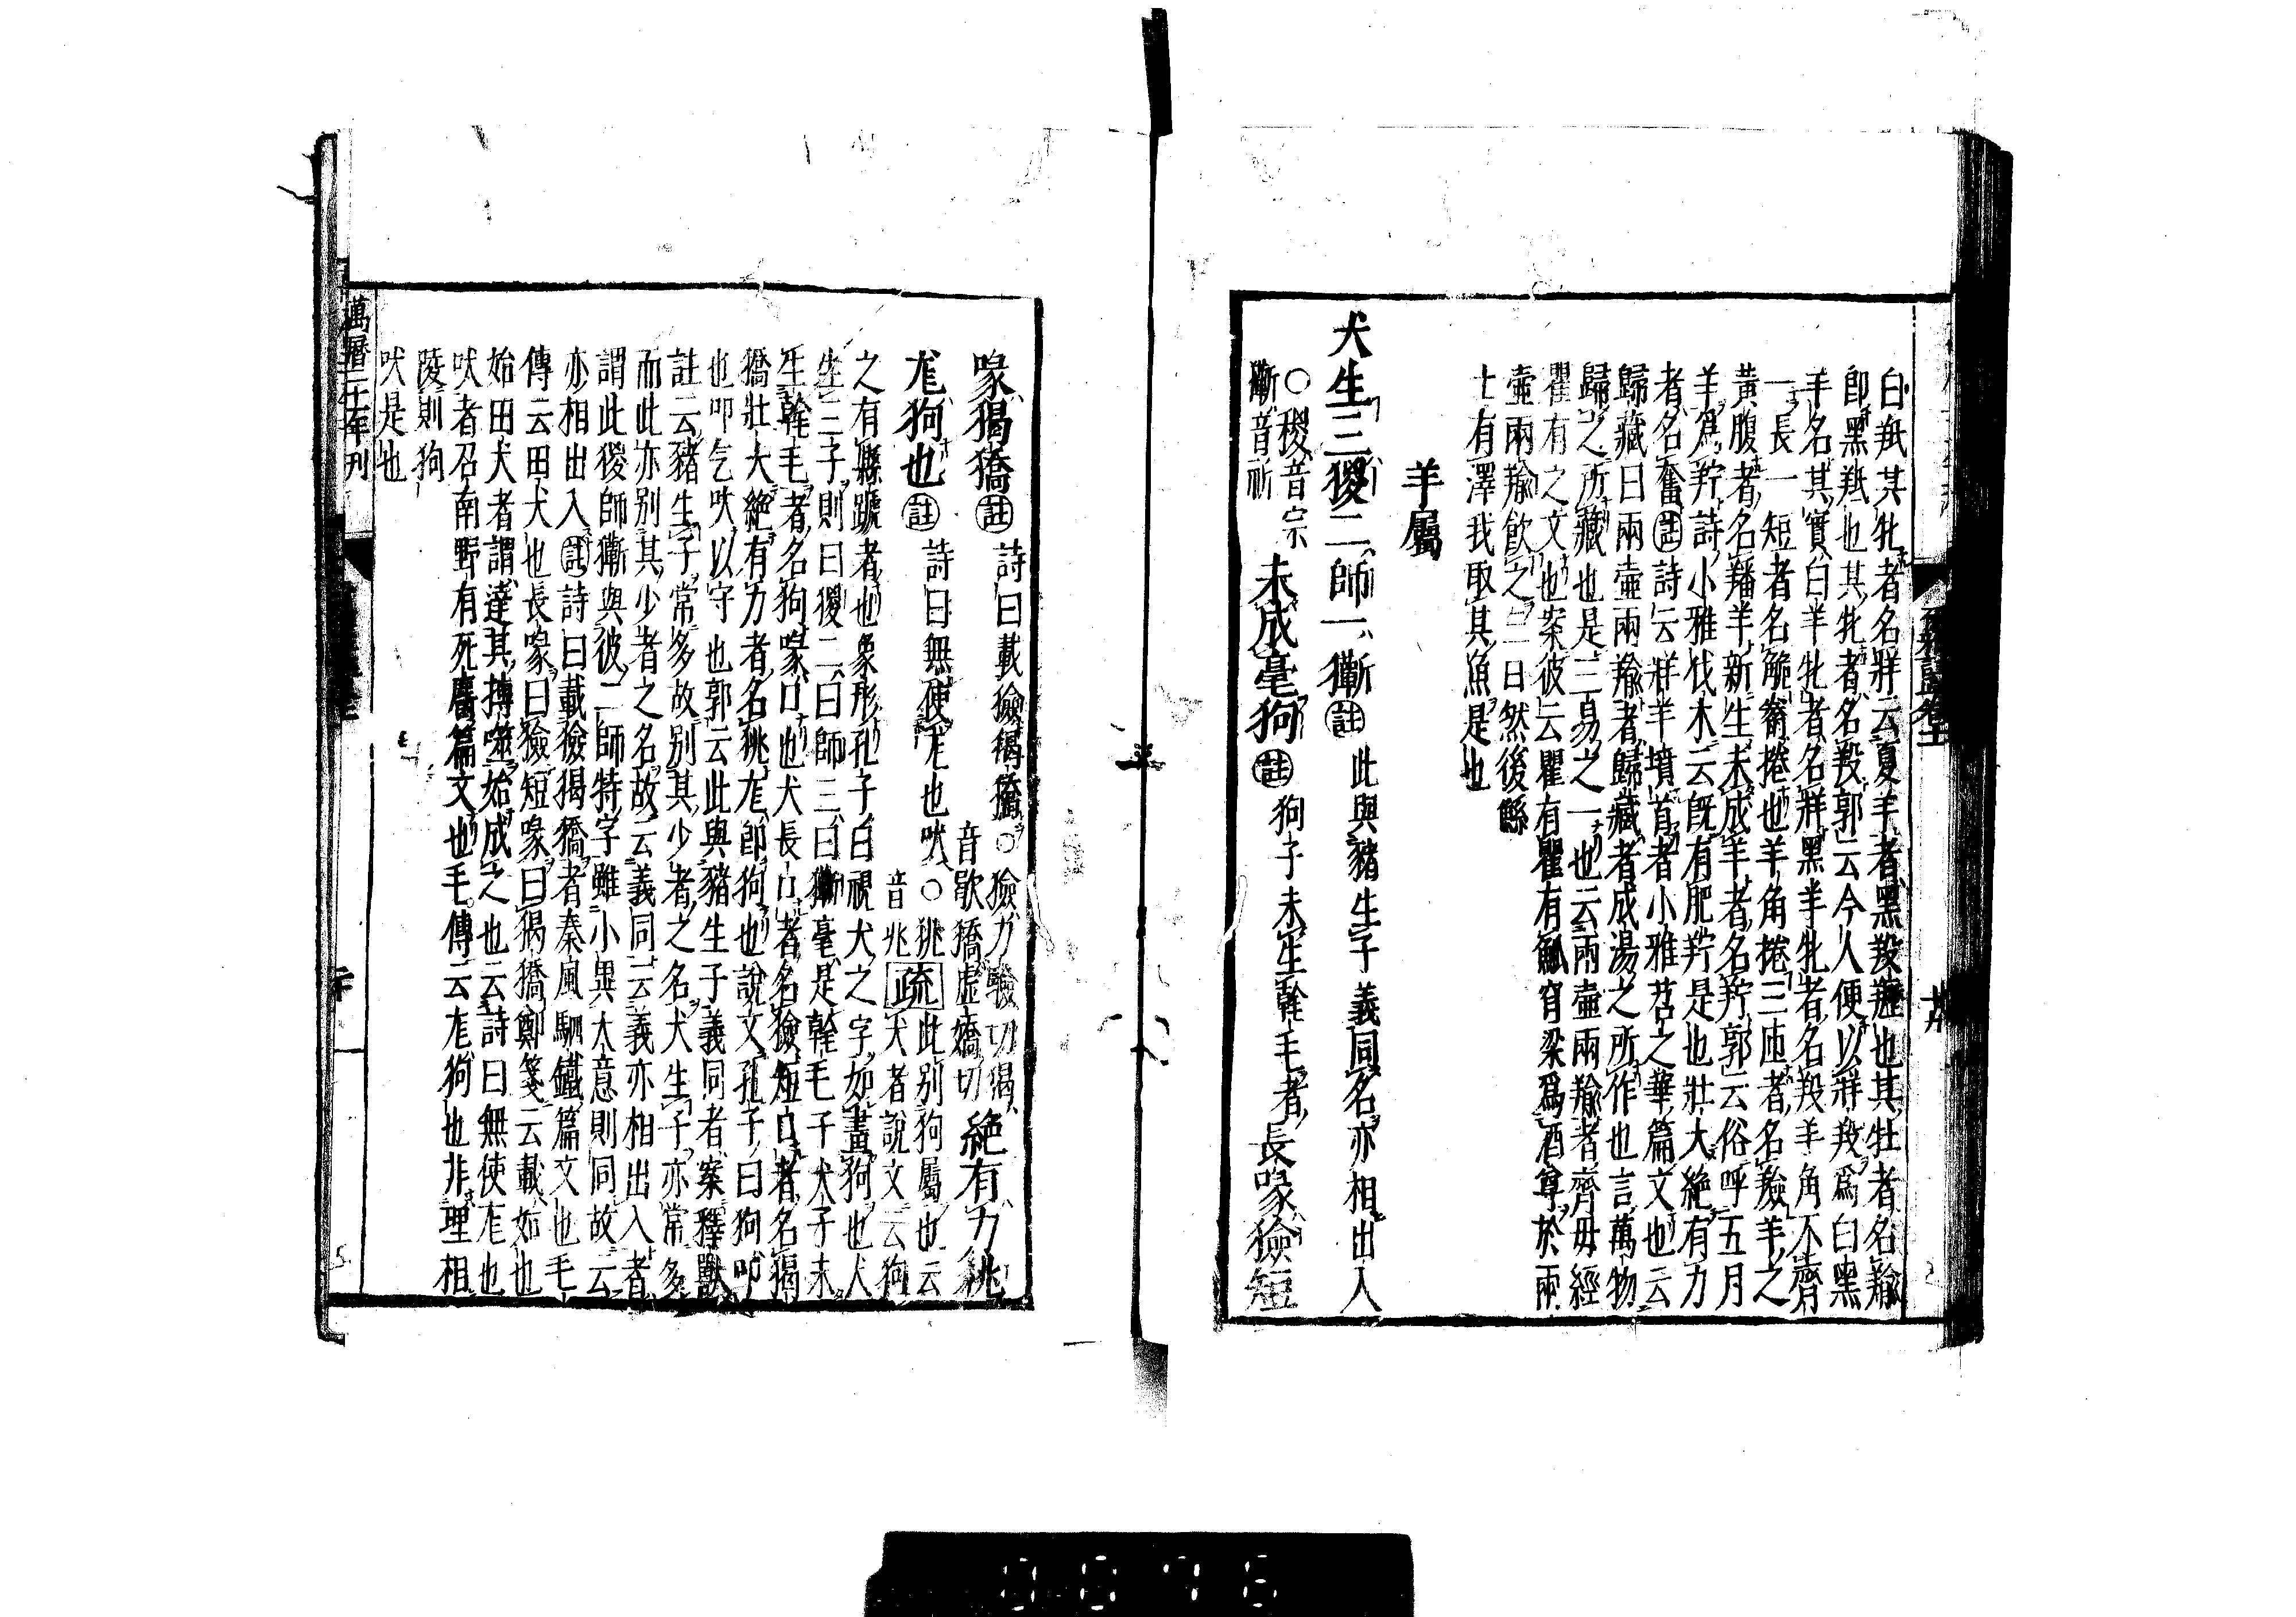 白羝其牝者名牂云夏羊者黑羖䍽也其牡者名羭
即黑羝也其牝者名羖郭云今人便以牂羖爲白黑
羊名其實白羊牝者名牂黑羊牝者名羖羊角不齊
一長一短者名觤觠捲也羊角捲三匝者名羷羊之
黃腹者名羳羊新生未成羊者名羜郭云俗呼五月
羊爲羜詩小雅伐木云既有肥羜是也壯大絶有力
者名奮註詩云牂羊墳首者小雅苕之華篇文也云
歸藏曰兩壺兩羭者歸藏者成湯之所作也言萬物
歸之所藏也是三易之一也云兩壺兩羭者齊毋經
瞿有之文也案彼云瞿有瞿有觚宵梁爲酒尊於兩
壺兩羭飮之三日然後鮴
士有澤我取其魚是也
羊屬
犬生三猣二師一獑註此與豬生子義同名亦相出入
○猣音宗
獑音祈
未成毫狗註狗子未生𠦝毛者長喙獫短
喙猲獢註詩曰載獫猲獢○獫力驗切猲
音歇獢虛嬌切
絶有力狣
尨狗也註詩曰無使尨也吠○狣
音兆疏此別狗屬也云
犬者說文云狗
之有縣蹏者也象形孔子曰視犬之字如畫狗也犬
生三子則曰猣二曰師三曰獑毫是𠦝毛子犬子未
生𠦝毛者名狗喙口也犬長口者名獫短口者名猲
獢壯大絶有力者名狣尨即狗也說文孔子曰狗叩
也叩气吠以守也郭云此與豬生子義同者案釋獸
註云豬生子常多故別其少者之名犬生子亦常多
而此亦別其少者之名故云義同云義亦相出入者
謂此猣師獑與彼二師特字雖小異大意則同故云
亦相出入註詩曰載獫猲獢者秦風駟鐵篇文也毛
傳云田犬也長喙曰獫短喙曰猲獢鄭箋云載始也
始田犬者謂達其搏噬始成之也云詩曰無使尨也
吠者召南野有死麕篇文也毛傳云尨狗也非理相
陵則狗
吠是也